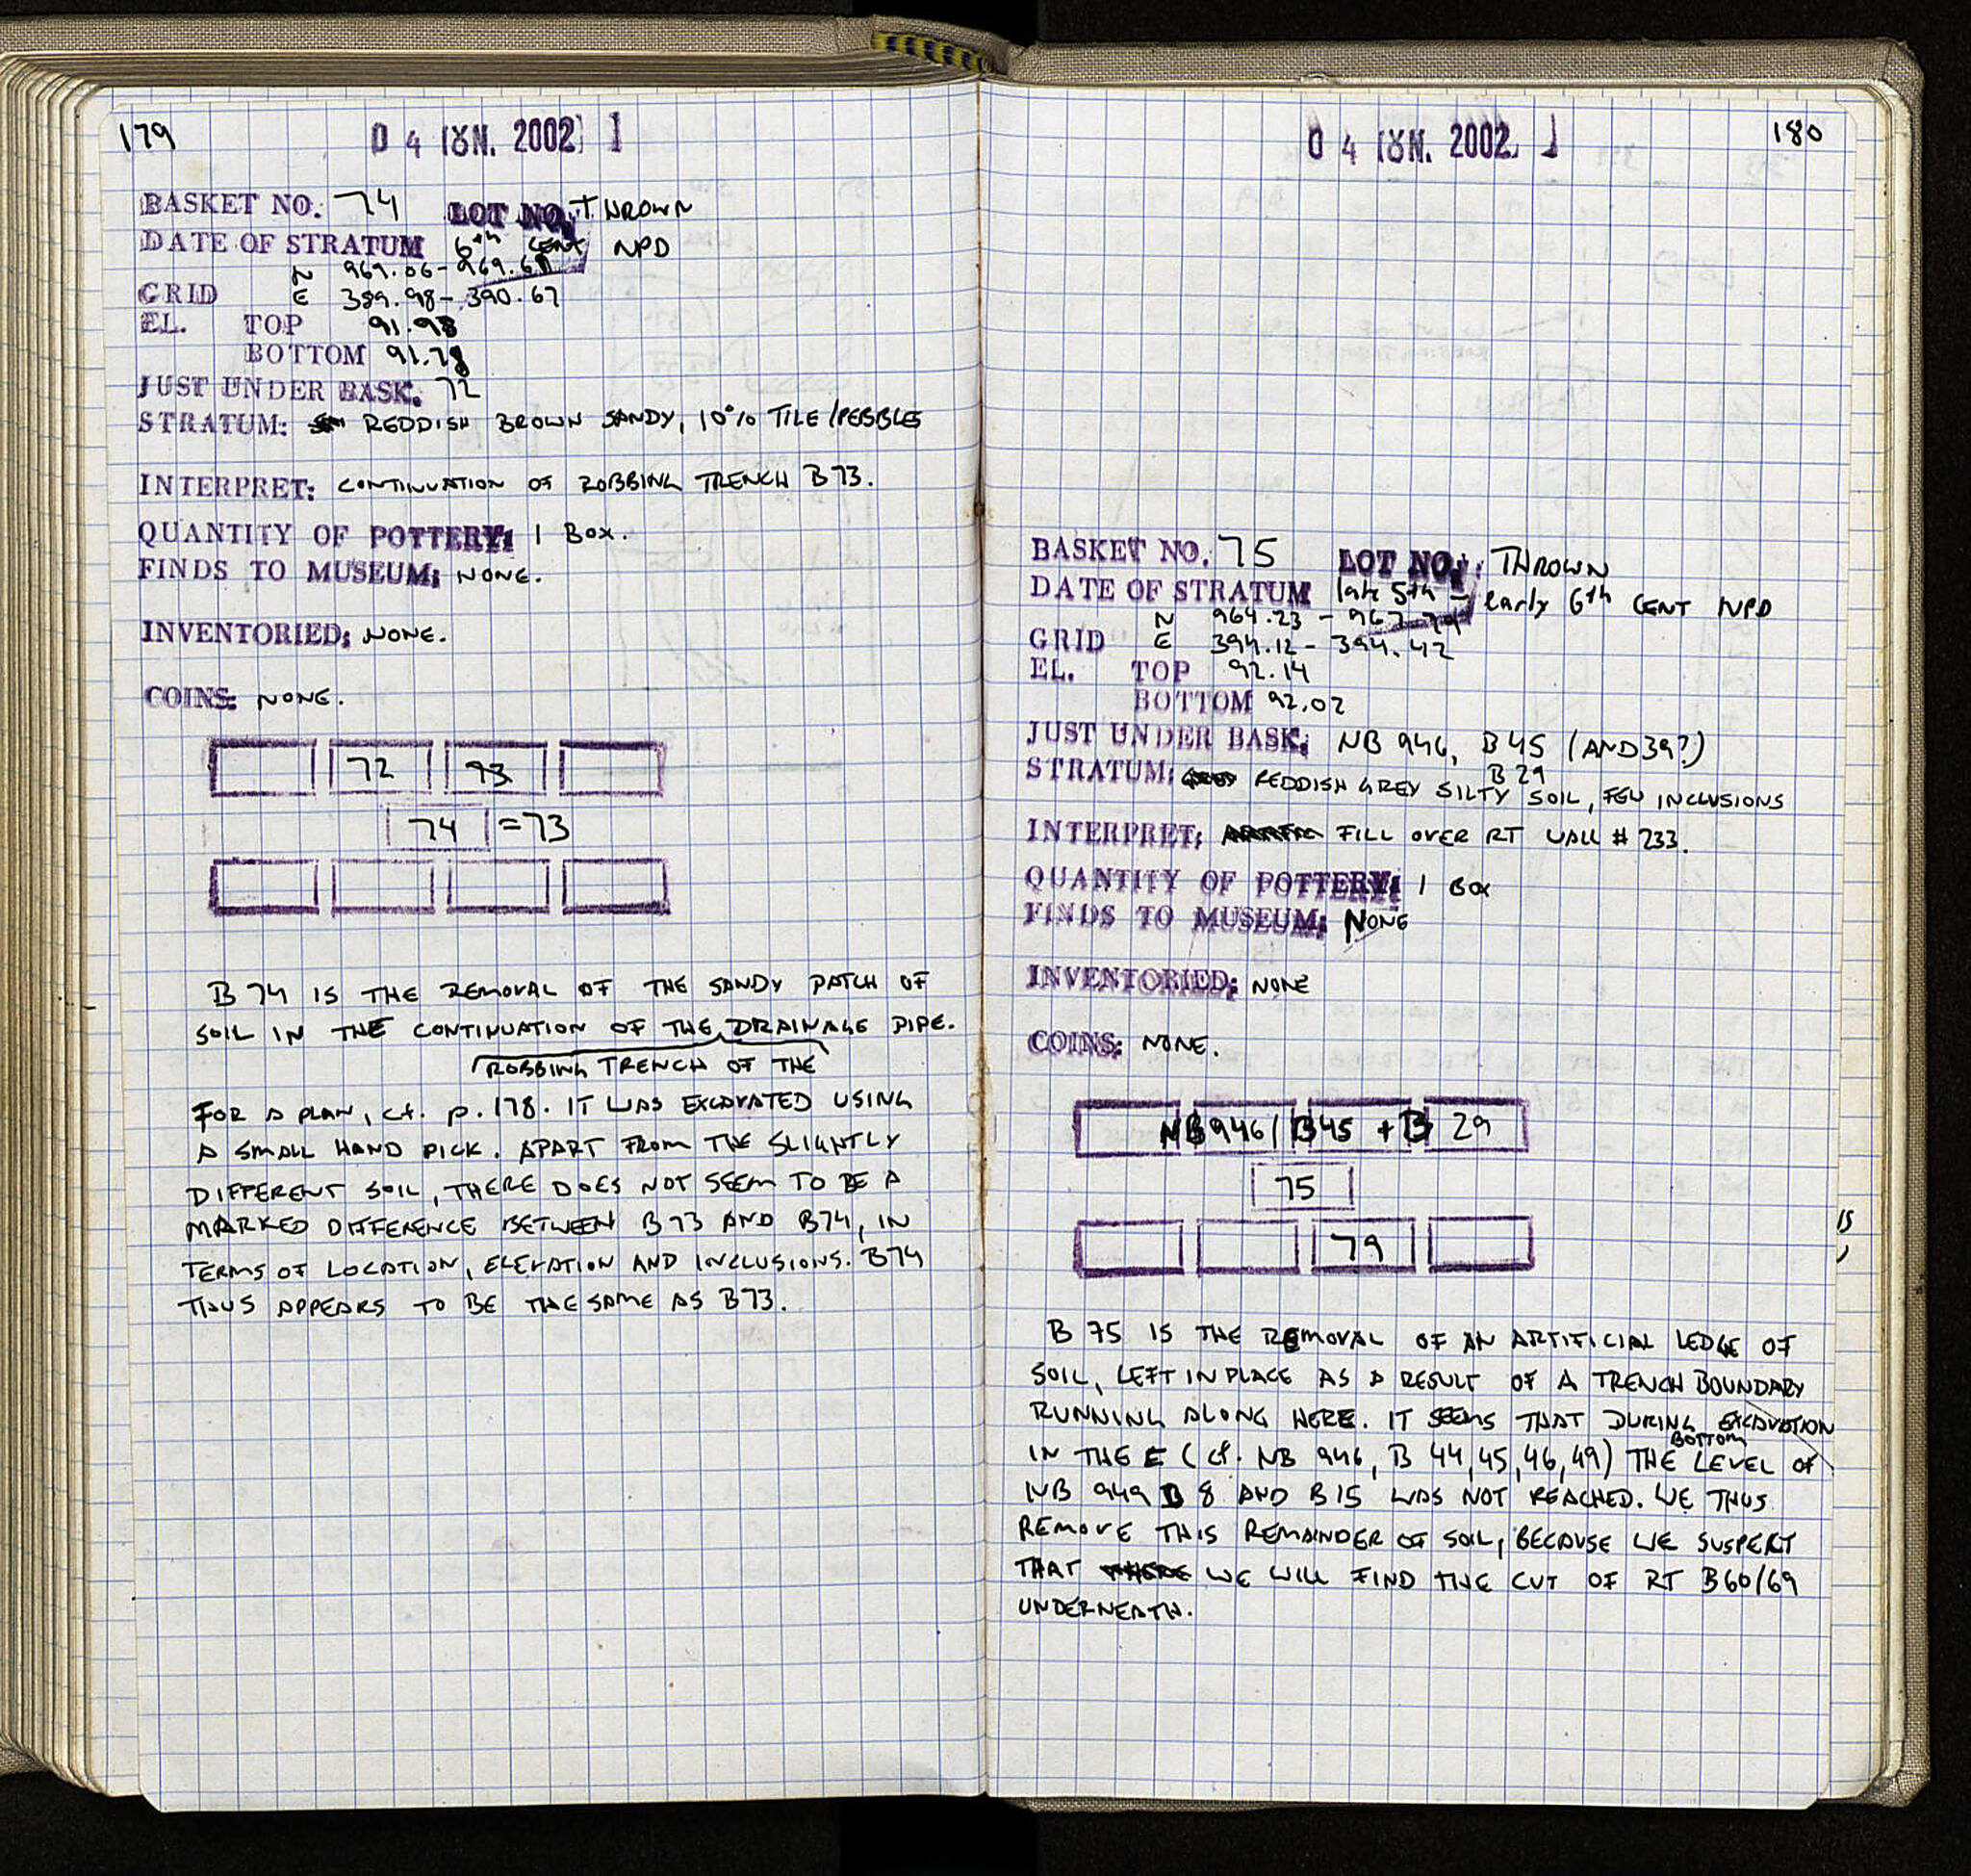 179
04 ΙΟΥΝ. 2002 1
BASKET NO. 74 LOT NO. THROWN
DATE OF STRATUM 6th CENT NPD
N 969.06-969.61
GRID E 389.98-390.67
EL. TOP 91.98
BOTTOM 91.78
JUST UNDER BASK. 72
STRATUM: REDDISH BROWN SANDY, 10% TILE/PEBBLES
INTERPRET: CONTINUATION OF ROBBING TRENCH B73.
QUANTITY OF POTTERY: 1 BOX.
FINDS TO MUSEUM: NONE.
INVENTORIED: NONE.
COINS: NONE.
72 73
74 =73
B 74 IS THE REMOVAL OF THE SANDY PATCH OF
SOIL IN THE CONTINUATION OF THE DRAINAGE PIPE.
ROBBING TRENCH OF THE
FOR A PLAN, cf. p.178. IT WAS EXCAVATED USING
A SMALL HAND PICK. APART FROM THE SLIGHTLY
DIFFERENT SOIL, THERE DOES NOT SEEM TO BE A
MARKED DIFFERENCE BETWEEN B73 AND B74, IN
TERMS OF LOCATION, ELEVATION AND INCLUSIONS. B74
THUS APPEARS TO BE THE SAME AS B73.
04 ΙΟΥΝ. 2002 1
180
BASKET NO. 75 LOT NO. : THROWN
DATE OF STRATUM late 5th - early 6th CENT NPD
N 964.23 - 967.79
GRID E 394.12 - 394.42
EL. TOP 92.14
BOTTOM 92.02
JUST UNDER BASK. NB 946, B45 (AND 39?)
B 29
STRATUM: REDDISH GREY SILTY SOIL, FEW INCLUSIONS
INTERPRET: FILL OVER RT WALL # 233.
QUANTITY OF POTTERY: 1 BOX
FINDS TO MUSEUM: NONE
INVENTORIED: NONE
COINS: NONE.
NB946/ B45 + B 29
75
79
B 75 IS THE REMOVAL OF AN ARTIFICIAL LEDGE OF
SOIL, LEFT IN PLACE AS A RESULT OF A TRENCH BOUNDARY
RUNNING ALONG HERE. IT SEEMS THAT DURING EXCAVATION
BOTTOM
IN THE E (cf. NB 946, B 44,45,46,49) THE LEVEL OF
NB 949 B 8 AND B15 WAS NOT REACHED. WE THUS
REMOVE THIS REMAINDER OF SOIL, BECAUSE WE SUSPECT
THAT WE WILL FIND THE CUT OF RT B60/69
UNDERNEATH.